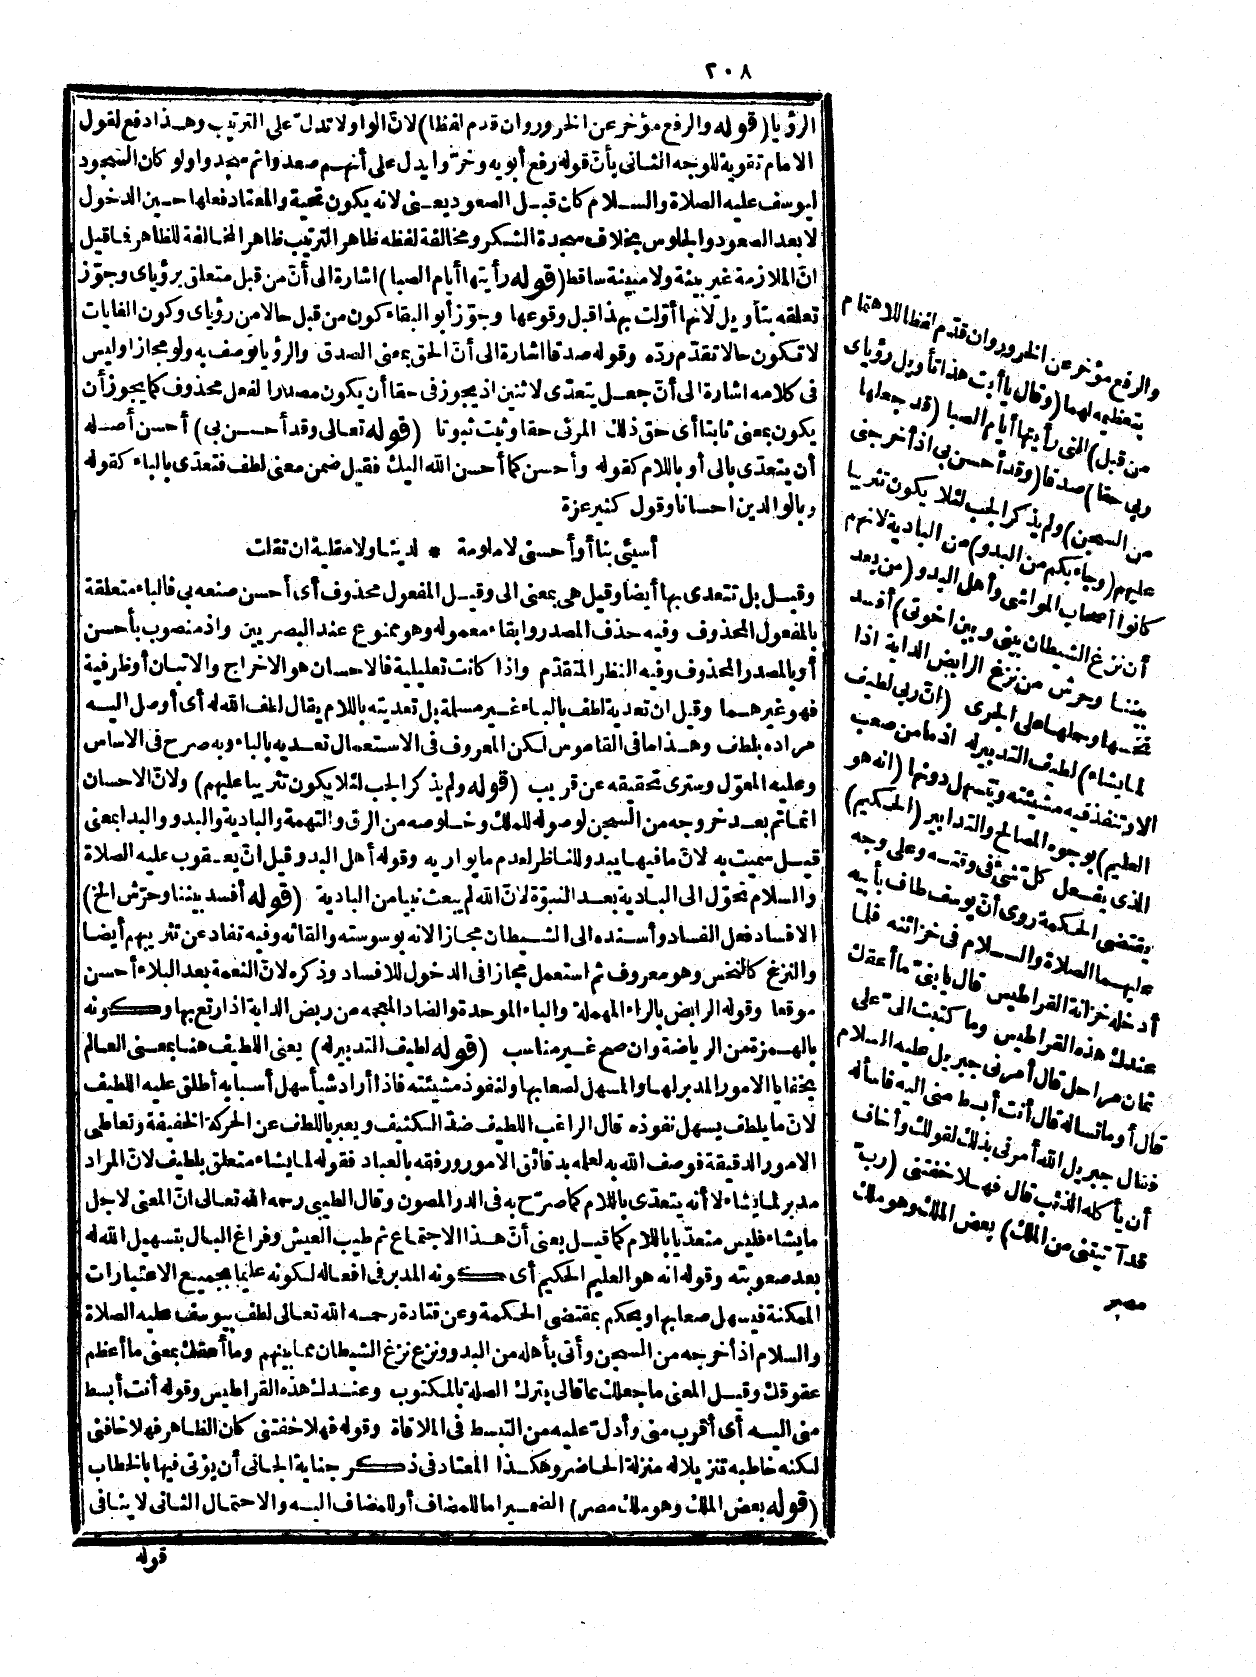 ٢٠٨
الرؤيا (قوله والرفع مؤخر عن الخرور وان قدم لفظا) لانّ الواو لا تدلّ على الترتيب وهذا دفع لقول
الامام تقوية للوجه الثانى بأنّ قوله رفع أبويه وخرّوا يدل على أنهم صعدوا ثم سجدوا ولو كان السجود
ليوسف عليه الصلاة والسلام كان قبل الصعود يعنى لانه يكون تحية والمعتاد فعلها حين الدخول
لا بعد الصعود والجلوس بخلاف سجدة الشكر ومخالفة لفظه ظاهر الترتيب ظاهر المخالفة للظاهر فما قيل
انّ الملازمة غير بينة ولا مبينة ساقط (قوله رأيتها أيام الصبا) اشارة الى أنّ من قبل متعلق برؤياى وجوّز
تعلقه بتأويل لانها أوّلت بهذا قبل وقوعها وجوّز أبو البقاء كون من قبل حالا من رؤياى وكون الغايات
لا تكون حالا تقدّم ردّه وقوله صدقا اشارة الى أنّ الحق بمعنى الصدق والرؤيا توصف به ولو مجازا وليس
فى كلامه اشارة الى أنّ جعل يتعدّى لاثنين اذ يجوز فى حقا أن يكون مصدرا لفعل محذوف كما يجوز أن
يكون بمعنى ثابتا أى حق ذلك المرئى حقا وثبت ثبوتا (قوله تعالى وقد أحسن بى) أحسن أصله
أن يتعدّى بالى أو باللام كقوله وأحسن كما أحسن الله اليك فقيل ضمن معنى لطف فتعدّى بالباء كقوله
وبالوالدين احسانا وقول كثير عزة
أسيئى بنا أو أحسنى لا ملومة * لدينا ولا مقلية ان تقلت
وقيل بل تتعدى بها أيضا وقيل هى بمعنى الى وقيل المفعول محذوف أى أحسن صنعه بى فالباء متعلقة
بالمفعول المحذوف وفيه حذف المصدر وابقاء معموله وهو ممنوع عند البصريين واذ منصوب بأحسن
أو بالمصدر المحذوف وفيه النظر المتقدّم واذا كانت تعليلية فالاحسان هو الاخراج والاتيان أو ظرفية
فهو غيرهما وقيل ان تعدية لطف بالباء غير مسلمة بل تعديته باللام يقال لطف الله له أى أوصل اليه
مراده بلطف وهذا ما فى القاموس لكن المعروف فى الاستعمال تعديه بالباء وبه صرح فى الاساس
وعليه المعوّل وسترى تحقيقه عن قريب (قوله ولم يذكر الجب لئلا يكون تثريبا عليهم) ولانّ الاحسان
انما تم بعد خروجه من السجن لوصوله للملك وخلوصه من الرق والتهمة والبادية والبدو والبدا بمعنى
قيل سميت به لانّ ما فيها يبدو للناظر لعدم ما يواريه وقوله أهل البدو قيل انّ يعقوب عليه الصلاة
والسلام تحوّل الى البادية بعد النبوّة لانّ الله لم يبعث نبيا من البادية (قوله أفسد بيننا وحرّش الخ)
الافساد فعل الفساد وأسنده الى الشيطان مجازا لانه بوسوسته والقائه وفيه تفاد عن تثريبهم أيضا
والنزغ كالنخس وهو معروف ثم استعمل مجازا فى الدخول للافساد وذكره لانّ النعمة بعد البلاء أحسن
موقعا وقوله الرابض بالراء المهملة والباء الموحدة والضاد المعجمة من ربض الدابة اذا ارتبع بها وكونه
بالهمزة من الرياضة وان صح غير مناسب (قوله لطيف التدبير له) يعنى اللطيف هنا بمعنى العالم
بخفايا الامور المدبر لها والمسهل لصعابها ولنفوذ مشيئته فاذا أراد شيأ سهل أسبابه أطلق عليه اللطيف
لانّ ما يلطف يسهل نفوذه قال الراغب اللطيف ضدّ الكثيف ويعبر باللطف عن الحركة الخفيفة وتعاطى
الامور الدقيقة فوصف الله به لعلمه بدقائق الامور ورفقه بالعباد فقوله لما يشاء متعلق بلطيف لانّ المراد
مدبر لما يشاء لا أنه يتعدّى باللام كما صرّح به فى الدر المصون وقال الطيبى رحمه الله تعالى انّ المعنى لاجل
ما يشاء فليس متعدّيا باللام كما قيل يعنى أنّ هذا الاجتماع ثم طيب العيش وفراغ البال بتسهيل الله له
بعد صعوبته وقوله انه هو العليم الحكيم أى كونه المدبر فى افعاله لكونه عليما بجميع الاعتبارات
الممكنة فيسهل صعابها ويحكم بمقتضى الحكمة وعن قتادة رحمه الله تعالى لطف بيوسف عليه الصلاة
والسلام اذ أخرجه من السجن وأتى بأهله من البدو ونزع نزغ الشيطان مما بينهم وما أعقك بمعنى ما أعظم
عقوقك وقيل المعنى ما جعلك عاقا لى بترك الصلة بالمكتوب وعندك هذه القراطيس وقوله أنت أبسط
منى اليه أى أقرب منى وأدلّ عليه من التبسط فى الملاقاة وقوله فهلا خفتنى كان الظاهر فهلا خافنى
لكنه خاطبه تنزيلا له منزلة الحاضر وهكذا المعتاد فى ذكر جناية الجانى أن يؤتى فيها بالخطاب
(قوله بعض الملك وهو ملك مصر) الضمير اما للمضاف أو للمضاف اليه والاحتمال الثانى لا ينافى
قوله
والرفع مؤخر عن الخرور وان قدّم لفظا للاهتمام
بتعظيمه لهما (وقال يا أبت هذا تأويل رؤياى
من قبل) التى رأيتها أيام الصبا (قد جعلها
ربى حقا) صدقا (وقد أحسن بى اذ أخرجنى
من السجن) ولم يذكر الجب لئلا يكون تثريبا
عليهم (وجاء بكم من البدو) من البادية لانهم
كانوا أصحاب المواشى وأهل البدو (من بعد
أن نزغ الشيطان بينى وبين اخوتى) أفسد
بيننا وحرش من نزغ الرابض الدابة اذا
نخسها وحملها على الجرى (انّ ربى لطيف
لما يشاء) لطيف التدبير له اذ ما من صعب
الا وتنفذ فيه مشيئته ويتسهل دونها (انه هو
العليم) بوجوه المصالح والتدابير (الحكيم)
الذى يفعل كل شئ فى وقته وعلى وجه
يقتضى الحكمة روى أنّ يوسف طاف بأبيه
عليهما الصلاة والسلام فى خزائنه فلما
أدخله خزانة القراطيس قال يا بنىّ ما أعقك
عندك هذه القراطيس وما كتبت الىّ على
ثمان مراحل قال أمرنى جبريل عليه السلام
قال أو ما تسأله قال أنت أبسط منى اليه فاسأله
فقال جبريل الله أمرنى بذلك لقولك وأخاف
أن يأكله الذئب قال فهلا خفتنى (ربّ
قد آتيتنى من الملك) بعض الملك وهو ملك
مصر